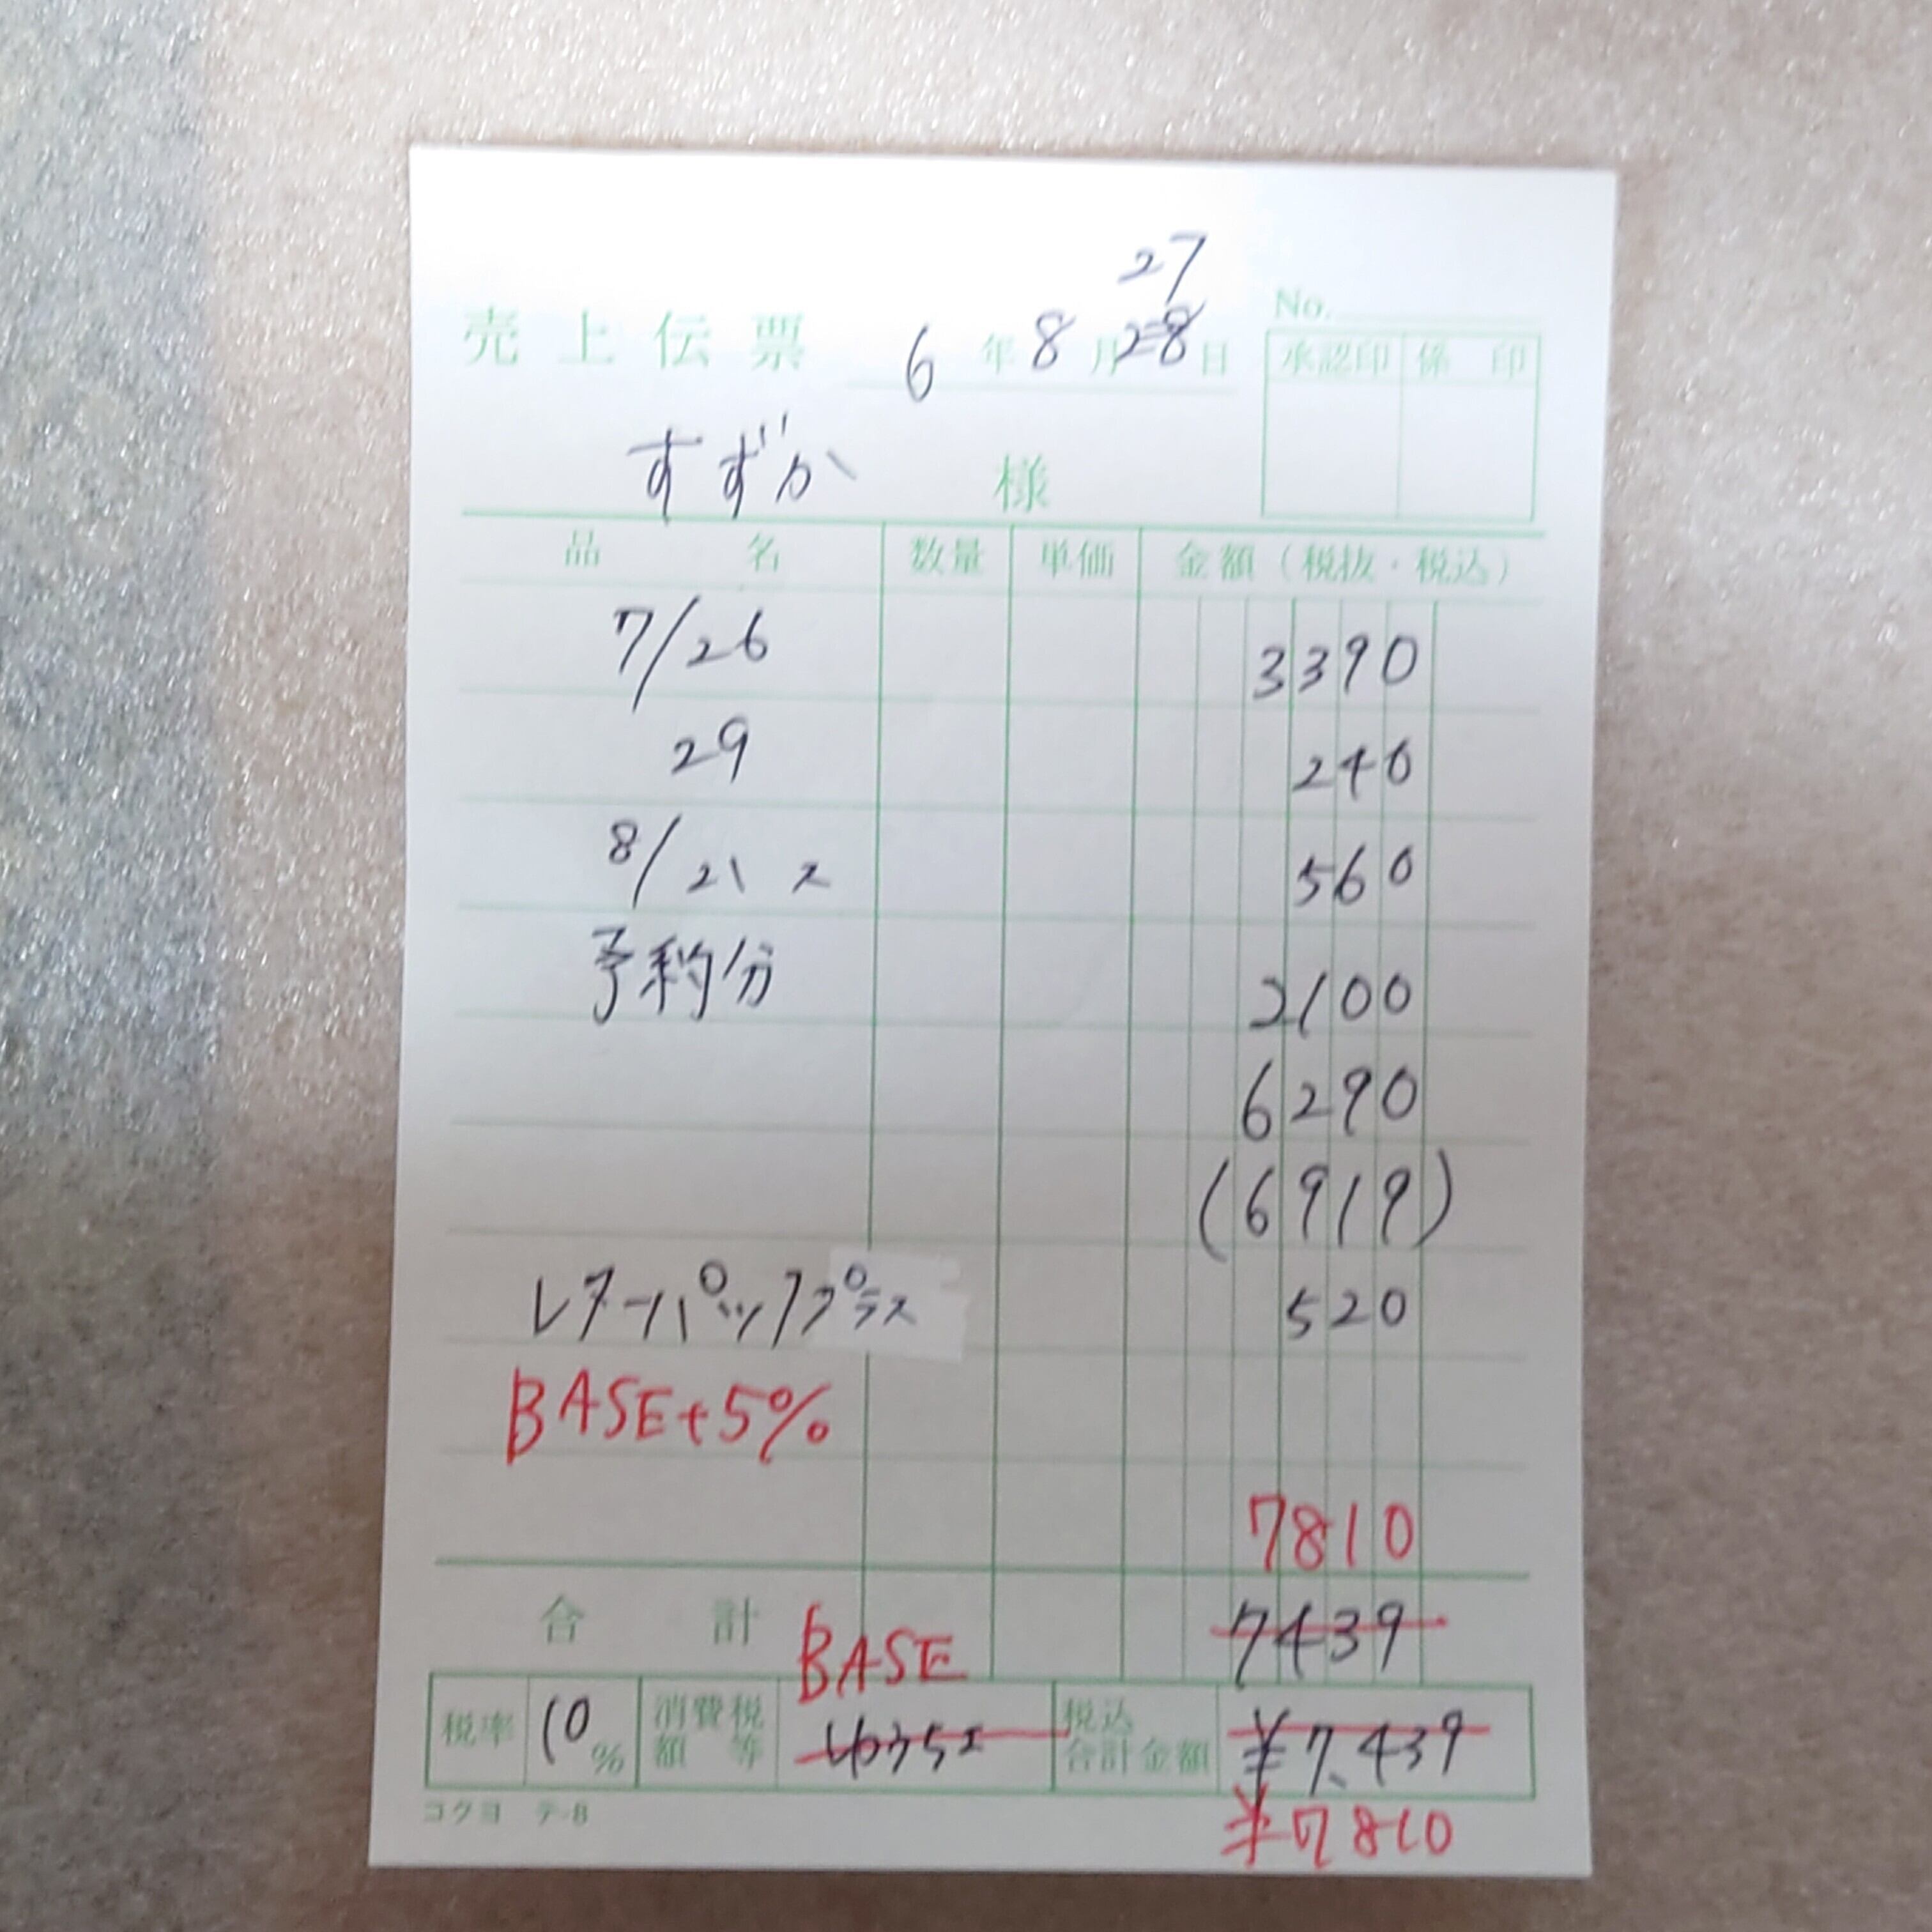 27
売上伝票 6年8月28日
No.
承認印 係印
すずか 様
品名 数量 単価 金額（税抜・税込）
7/26 3390
29 240
8/21 ス 560
予約分 2100
6290
(6919)
レターパックプラス 520
BASE+5%
7810
合計 7439
BASE
税率 10% 消費税額等 ゆうちょ 税込合計金額 ¥7,439
コクヨ テ-8
¥7810